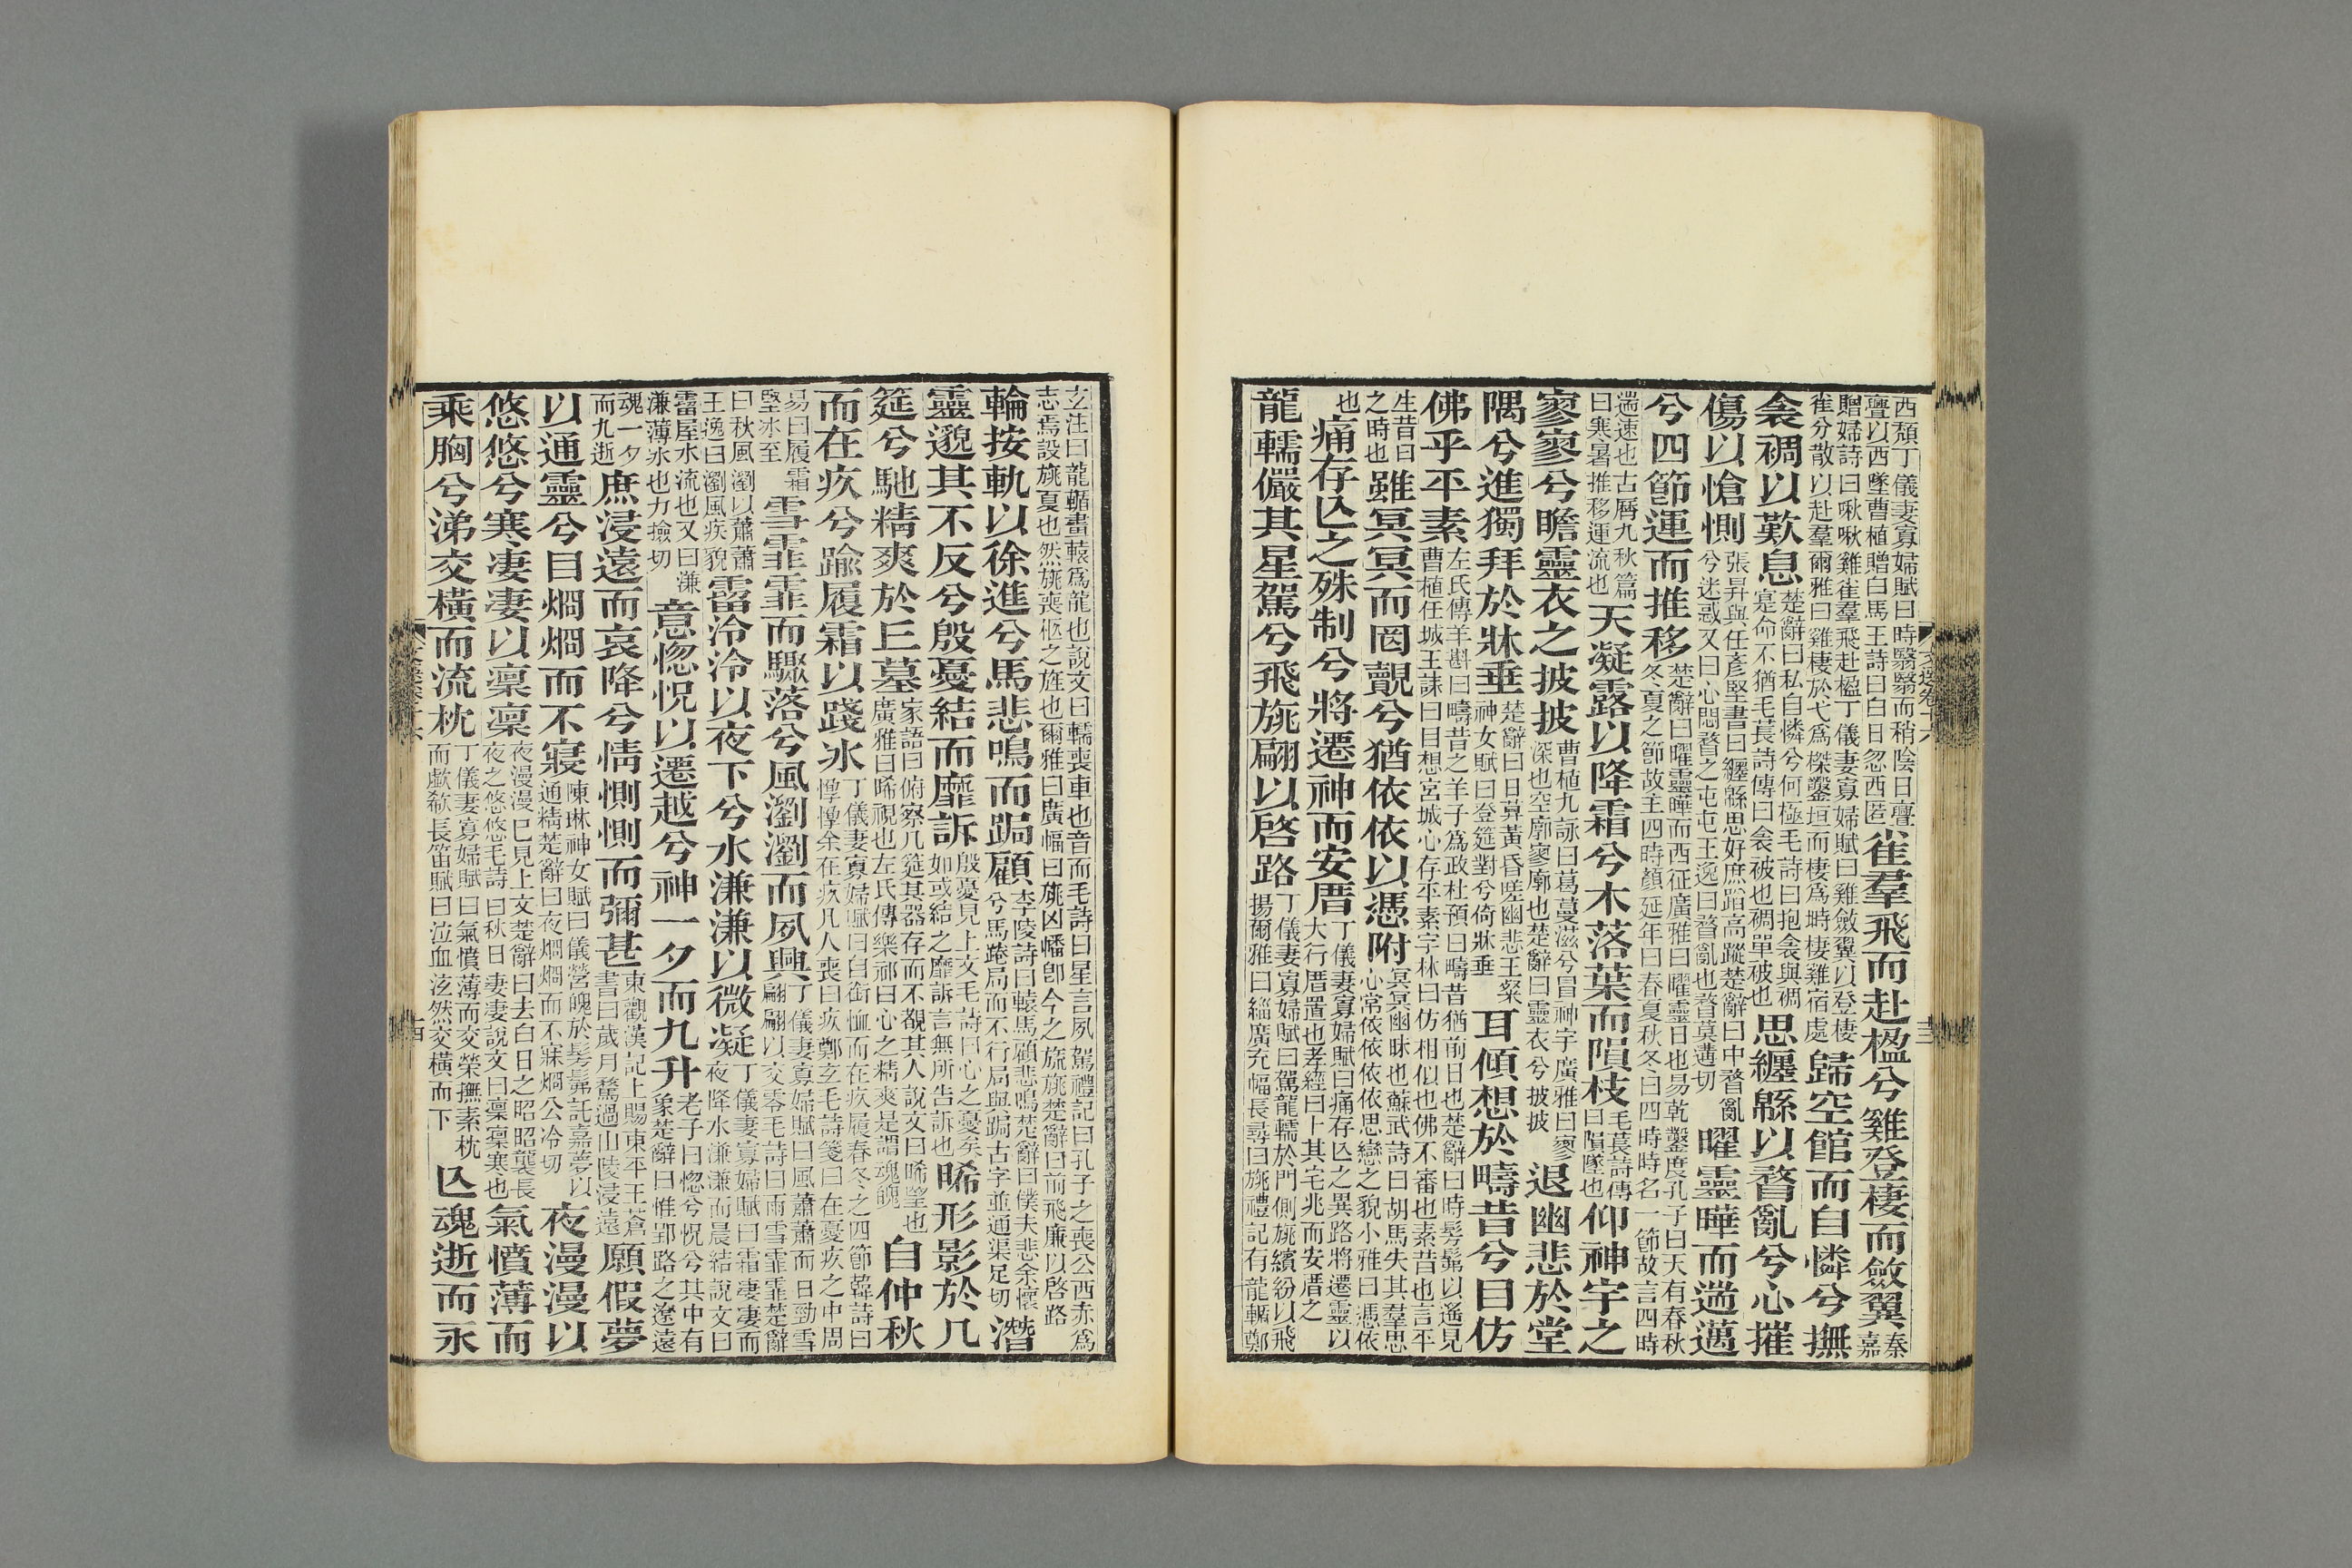 西頹丁儀妻寡婦賦曰時翳翳而稍陰日亹亹以西墜曹植贈白馬王詩曰白日忽西匿雀羣飛而赴楹兮雞登棲而斂翼秦嘉
贈婦詩曰啾啾雞雀羣飛赴楹丁儀妻寡婦賦曰雞斂翼以登棲雀分散以赴羣爾雅曰雞棲於弋爲榤鑿垣而棲爲塒棲雞宿處歸空館而自憐兮撫
衾裯以歎息楚辭曰私自憐兮何極毛詩曰抱衾與裯寔命不猶毛萇詩傳曰衾被也裯單被也思纏緜以瞀亂兮心摧
傷以愴惻張昇與任彥堅書曰纏緜思好庶蹈高蹤楚辭曰中瞀亂兮迷惑又曰心悶瞀之屯屯王逸曰瞀亂也瞀莫遘切曜靈曄而遄邁
兮四節運而推移楚辭曰曜靈曄而西征廣雅曰曜靈日也易乾鑿度孔子曰天有春秋冬夏之節故主四時顏延年曰春夏秋冬曰四時時名一節故言四時
遄速也古曆九秋篇曰寒暑推移運流也天凝露以降霜兮木落葉而隕枝毛萇詩傳曰隕墜也仰神宇之
寥寥兮瞻靈衣之披披曹植九詠曰葛蔓滋兮冒神宇廣雅曰寥深也空廓寥廓也楚辭曰靈衣兮披披退幽悲於堂
隅兮進獨拜於牀垂楚辭曰日莫黃昏嗟幽悲王粲神女賦曰登筵對兮倚牀垂耳傾想於疇昔兮目仿
佛乎平素左氏傳羊斟曰疇昔之羊子爲政杜預曰疇昔猶前日也楚辭曰時髣髴以遙見曹植任城王誄曰目想宮城心存平素字林曰仿相似也佛不審也素昔也言平
生昔日之時也雖冥冥而罔覿兮猶依依以憑附冥冥幽昧也蘇武詩曰胡馬失其羣思心常依依依依思戀之貌小雅曰憑依
也痛存亾之殊制兮將遷神而安厝丁儀妻寡婦賦曰痛存亾之異路將遷靈以大行厝置也孝經曰卜其宅兆而安厝之
龍轜儼其星駕兮飛旐翩以啓路丁儀妻寡婦賦曰駕龍轜於門側旐繽紛以飛揚爾雅曰緇廣充幅長尋曰旐禮記有龍輴鄭
文選卷十六
十三
玄注曰龍輴畫轅爲龍也說文曰轜喪車也音而毛詩曰星言夙駕禮記曰孔子之喪公西赤爲志焉設旐夏也然旐喪柩之旌也爾雅曰廣幅曰旐凶幡卽今之旐旐楚辭曰前飛廉以啓路
輪按軌以徐進兮馬悲鳴而跼顧李陵詩曰轅馬顧悲鳴楚辭曰僕夫悲余懷兮馬踡局而不行局與跼古字並通渠足切潛
靈邈其不反兮殷憂結而靡訴殷憂見上文毛詩曰心之憂矣如或結之靡訴言無所告訴也睎形影於几
筵兮馳精爽於丘墓家語曰俯察几筵其器存而不覩其人說文曰睎望也廣雅曰睎視也左氏傳樂祁曰心之精爽是謂魂魄自仲秋
而在疚兮踰履霜以踐冰丁儀妻寡婦賦曰自銜恤而在疚履春冬之四節韓詩曰惸惸余在疚凡人喪曰疚鄭玄毛詩箋曰在憂疚之中周
易曰履霜堅冰至雪霏霏而驟落兮風瀏瀏而夙興丁儀妻寡婦賦曰風蕭蕭而日勁雪翩翩以交零毛詩曰雨雪霏霏楚辭
曰秋風瀏以蕭蕭王逸曰瀏風疾貌霤泠泠以夜下兮水溓溓以微凝丁儀妻寡婦賦曰霜凄凄而夜降水溓溓而晨結說文曰
霤屋水流也又曰溓溓薄冰也力撿切意惚怳以遷越兮神一夕而九升老子曰惚兮怳兮其中有象楚辭曰惟郢路之遼遠
魂一夕而九逝庶浸遠而哀降兮情惻惻而彌甚東觀漢記上賜東平王蒼書曰歲月騖過山陵浸遠願假夢
以通靈兮目烱烱而不寢陳琳神女賦曰儀營魄於髣髴託嘉夢以通精楚辭曰夜烱烱而不寐烱公冷切夜漫漫以
悠悠兮寒凄凄以凛凛夜漫漫已見上文楚辭曰去白日之昭昭襲長夜之悠悠毛詩曰秋日凄凄說文曰凛凛寒也氣憤薄而
乘胸兮涕交橫而流枕丁儀妻寡婦賦曰氣憤薄而交縈撫素枕而歔欷長笛賦曰泣血泫然交橫而下亾魂逝而永
文選卷十六
十四